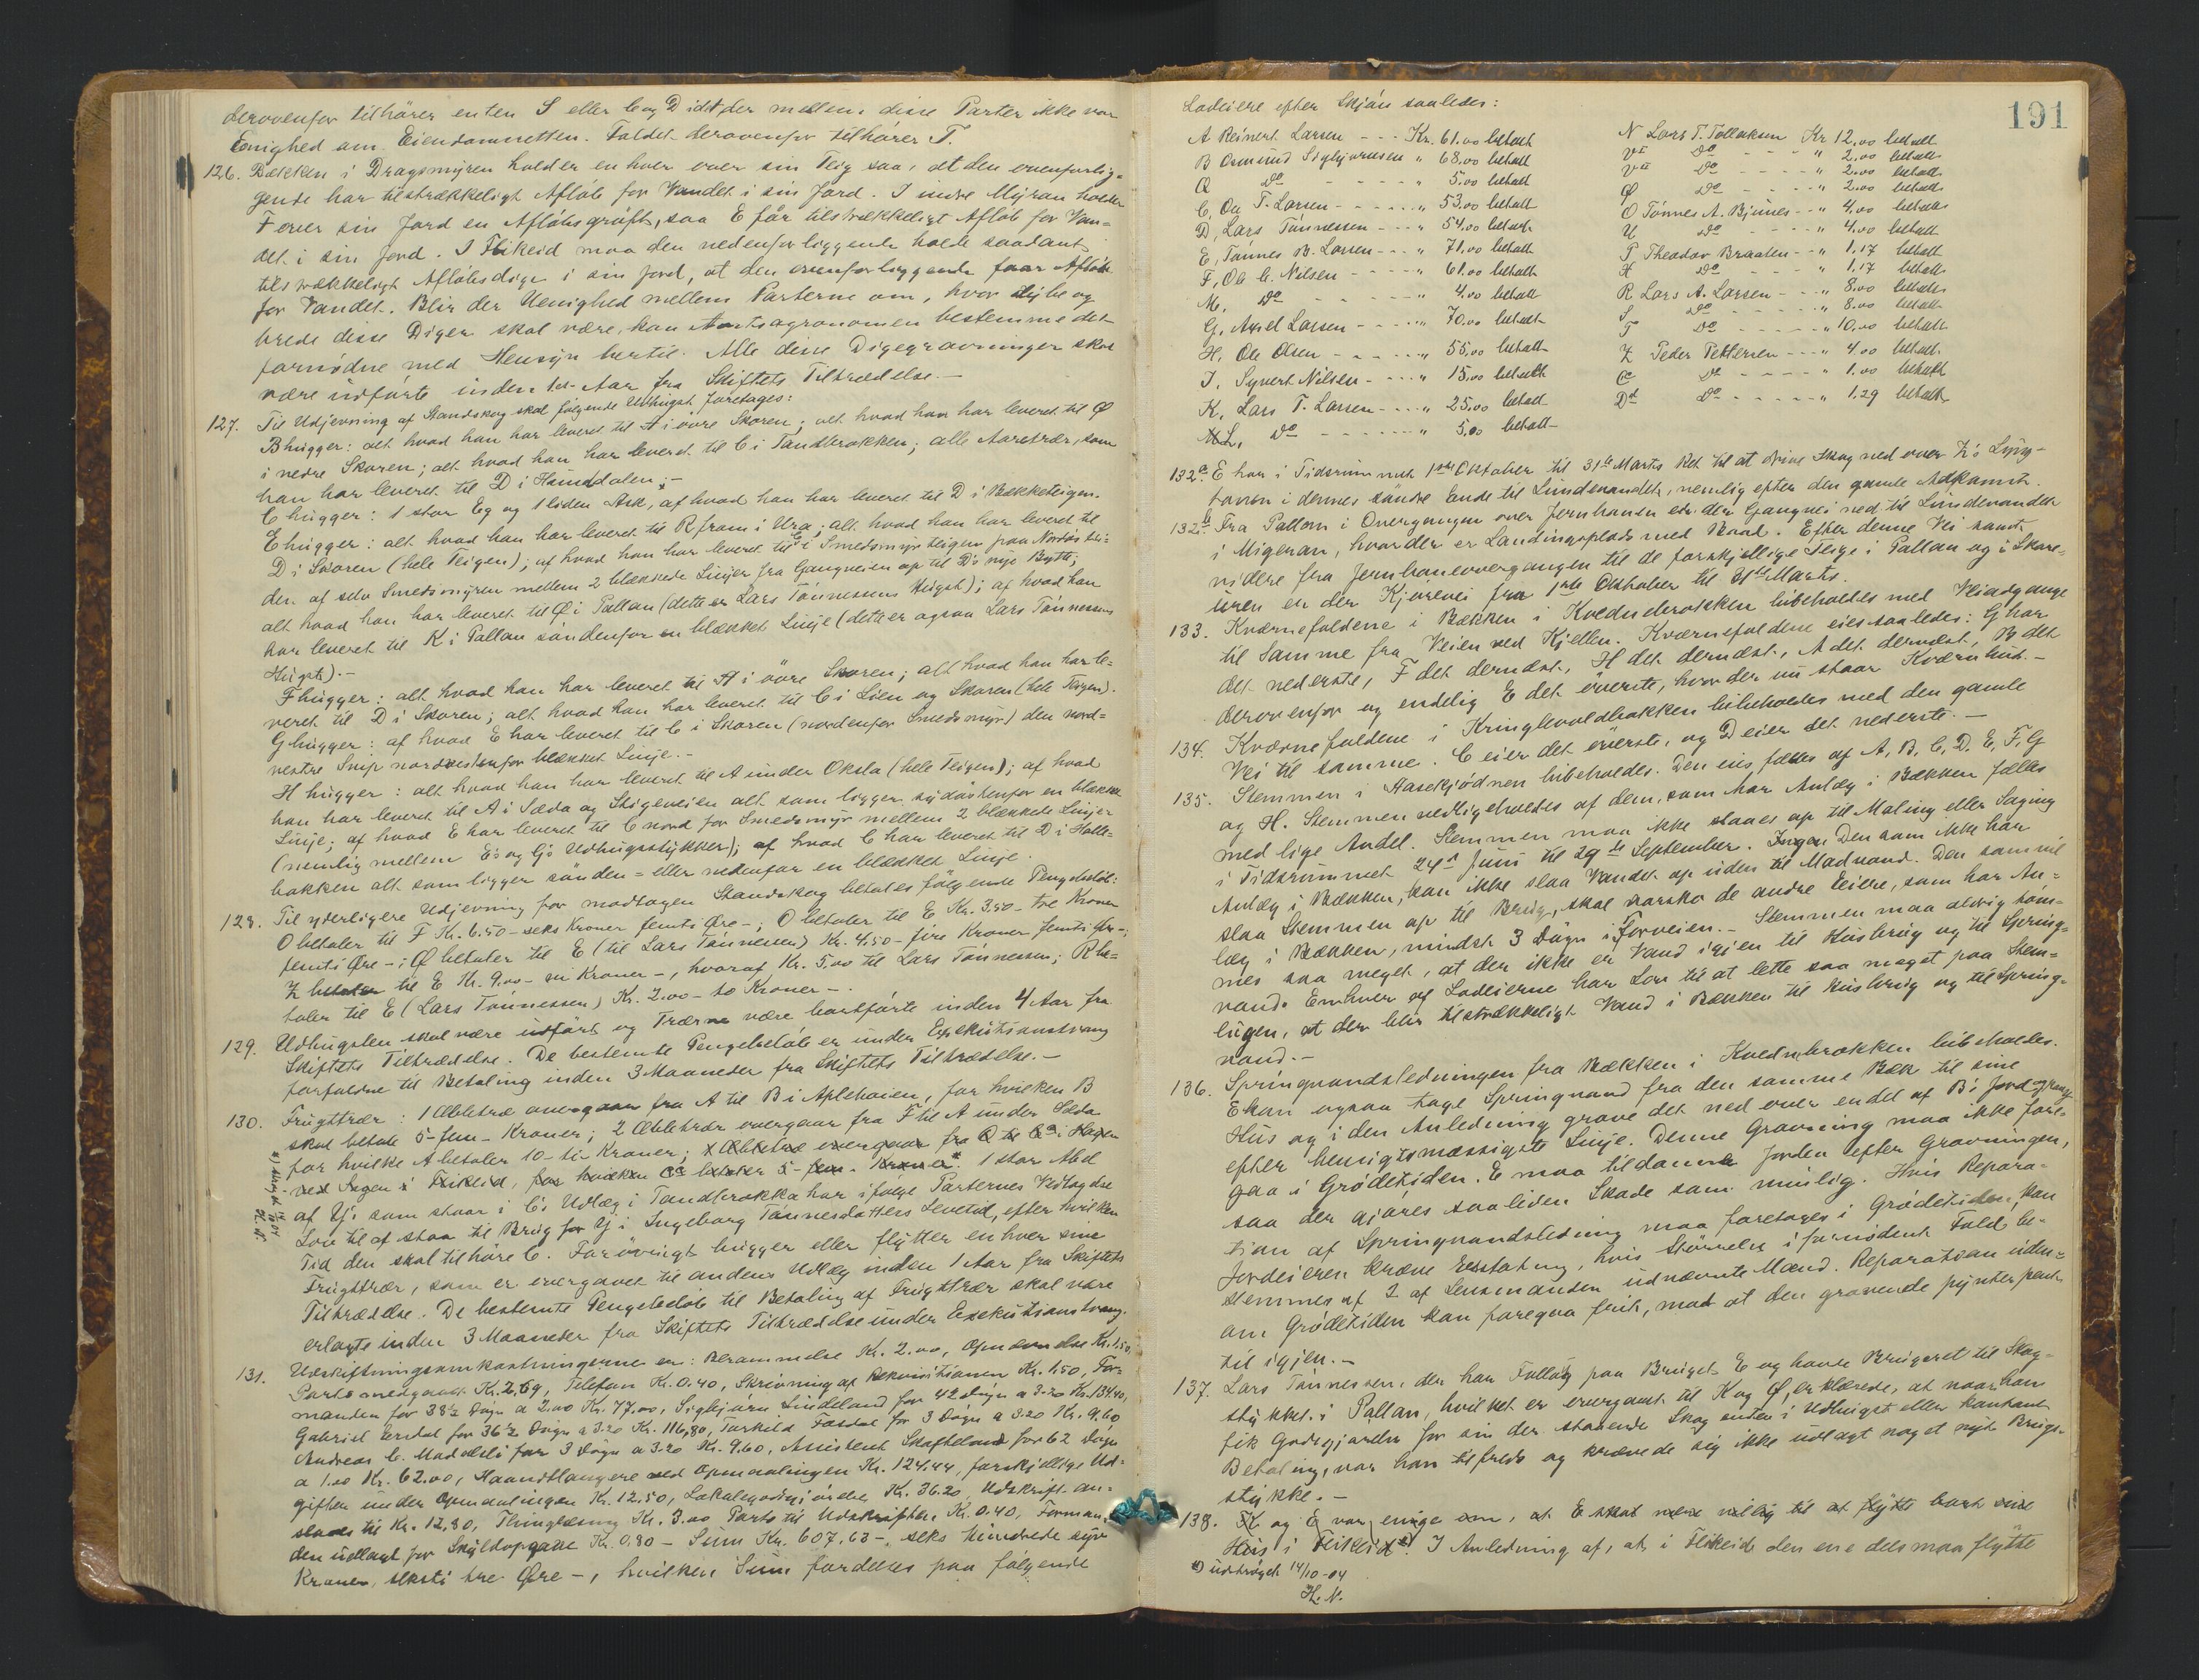 derovenfor tilhører enten S eller C og D idet der mellem disse Parter ikke var
Enighed om Eiendomsretten. Faldet derovenfor tilhører T.
126. Bækken i Dragsmyren holder enhver over sin Teig saa, at den ovenforlig=
gende har tilstrækkeligt Afløb for Vandet i sin Jord. I indre Myran holder
F over sin Jord en Afløbsgrøft, saa E får tilstrækkeligt Afløb for Van=
det i sin Jord. I Flikeid maa den nedenforliggende holde saadant
tilstrækkeligt Afløbsdige i sin Jord, at den ovenforliggende faar Afløb
for Vandet. Blir der Uenighed mellem Parterne om, hvor dybe og
brede disse Diger skal være, kan Amtsagronomen bestemme det
fornødne med Hensyn hertil. Alle disse Digegravninger skal
være udførte inden 1et Aar fra Skiftets Tiltrædelse.-
127. Til Udjevning af Standskog skal følgende Udhugst foretages:
B hugger: alt hvad han har leveret til A i øvre Skoren; alt hvad han har leveret til Ø
i nedre Skoren; alt hvad han har leveret til C i Tandbrokken; alle Aaretrær, som
han har leveret til D i Hauddalen;-
C hugger: 1 stor Eg og 1 liden Ask, af hvad han har leveret til D i Bækketeigen.
E hugger: alt hvad han har leveret til R fram i Ura; alt hvad han har leveret til
D i Skoren (hele Teigen); af hvad han har leveret til G i Smedsmyr teigen paa Nordøstsi=
den af selv Smedsmyren mellem 2 blækkede Linjer fra Gangveien op til D's nye Bytte;
alt hvad han har leveret til Ø i Pallan (dette er Lars Tønnessens Hugst); af hvad han
har leveret til K i Pallan søndenfor en blækket Linje (dette er ogsaa Lars Tønnessens
Hugst).-
F hugger: alt hvad han har leveret til A i øvre Skoren; alt hvad han har le=
veret til D i Skoren; alt hvad han har leveret til C i Lien og Skoren (hele Teigen).
G hugger: af hvad E har leveret til C i Skoren (nordenfor Smedsmyr) den nord=
vestre Snip nordvestenfor blækket Linje.-
H hugger: alt hvad han har leveret til A under Oksla (hele Teigen); af hvad
han har leveret til A i Sæda og Stigeveien alt som ligger sydøstenfor en blækket
Linje; af hvad E har leveret til C nord for Smedsmyr mellem 2 blækkede Linjer
(nemlig mellem E's og G's Udhugsstykker); af hvad C har leveret til D i Holle=
bakken alt som ligger sønden= eller nedenfor en blækket Linje.
128. Til yderligere Udjevning for modtagen Standskog betales følgende Pengebeløb:
O betaler til F Kr. 6.50 - seks Kroner femti Øre -; O betaler til E Kr. 3.50 - tre Kroner
femti Øre -; Ø betaler til E (til Lars Tønnessen) Kr. 4.50 - fire Kroner femti Øre -;
Z betaler til E Kr. 9.00 - ni Kroner -, hvoraf Kr. 5.00 til Lars Tønnessen; R be=
taler til E (Lars Tønnessen) Kr. 2.00 - to Kroner -.
129. Udhugsten skal være udført og Trærne være bortførte inden 4 Aar fra
Skiftets Tiltrædelse. De bestemte Pengebeløb er under Exekutionstvang
forfaldne til Betaling inden 3 Maaneder fra Skiftets Tiltrædelse.-
130. Frugttrær: 1 Æbletræ overgaar fra A til B i Aplehaien, for hvilken B
skal betale 5 - fem - Kroner; 2 Æbletrær overgaar fra F til A under Sæda
for hvilke A betaler 10 - ti - Kroner; 1 Æbletræ overgaar fra Q til Ca i Hagen
ved Ingen i Flikeid, for hvilken Ca betaler 5 - fem - Kroner*. 1 stor Abel
af G's som staar i C's Udlæg i Tandbrokka har ifølge Parternes Vedtagelse
Lov til at staa til Brug for G i Ingeborg Tønnesdatters Levetid, efter hvilken
Tid den skal tilhøre C. Forøvrigt hugger eller flytter enhver sine
Frugttrær, som er overgaaet til andens Udlæg inden 1 Aar fra Skiftets
Tiltrædelse. De bestemte Pengebeløb til Betaling af Frugttrær skal være
erlagte inden 3 Maaneder fra Skiftets Tiltrædelse under Exekutionstvang.
*) strøget 14/10 04
H. N.
131. Udskiftningsomkostningerne er: Berammelse Kr. 2.00, Opnævnelse Kr. 1.50,
Porto medgaaet Kr. 2.69, Telefon Kr. 0.40, Skrivning af Rekvisitionen Kr. 1.50, For-
manden for 38½ Dogn a 2.00 Kr. 77.00, Sigbjørn Lindeland for 42 Døgn a 3.20 Kr. 134.40,
Gabriel Aredal for 36½ Døgn a 3.20 Kr. 116,80, Torkild Fosdal for 3 Døgn a 3.20 Kr. 9.60
Andreas C. Modalsli for 3 Døgn a 3.20 Kr. 9.60, Assistent Skofteland for 62 Døgn
a 1.00 Kr. 62.00, Haandtlangere ved Opmaalingen Kr. 124.44, forskjellige Ud=
gifter under Opmaalingen Kr. 12.50, Lokalegodtgjørelse Kr. 36.20, Udskrift an=
slaaes til Kr. 12,80, Thinglæsning Kr. 3.00 Porto til Udskriften Kr. 0.40, Forman=
den udlagt for Skyldopgave Kr. 0.80 - Sum Kr. 607,63 -, seks Hundrede syv
Kroner, seksti tre Øre -, hvilken Sum fordeles paa følgende
191
Lodeiere efter Skjøn saaledes:
A Reinert Larsen - - - Kr. 61.00 betalt
B Osmund Sigbjørnsen " 68.00 betalt
Q Do - - - - " 5.00 betalt
C, Ole T. Larsen - - - - " 53.00 betalt
D, Lars Tønnessen - - - " 54.00 betalt
E, Tønnes B. Larsen - - - " 71.00 betalt
F, Ole C. Nilsen - - - - " 61.00 betalt
M, Do - - - - " 4.00 betalt
G, Axel Larsen - - - - " 70.00 betalt
H, Ole Olsen - - - - " 55.00 betalt
J, Syvert Nilsen - - - - " 15.00 betalt
K, Lars T. Larsen - - - " 25.00 betalt
L, Do - - - - - " 5.00 betalt
N Lars T. Tollaksen Kr 12.00 betalt
VI Do - - - " 2.00 betalt
VII Do - - - " 2.00 betalt
Ø Do - - - " 2.00 betalt
O Tønnes A. Bjunes - - " 4.00 betalt
U Do - - - " 4.00 betalt
P Theodor Braaten - - " 1.17 betalt
X Do - - - " 1.17 betalt
R Lars A. Larsen - - - " 8.00 betalt
S Do - - - " 8.00 betalt
T Do - - - " 10.00 betalt
Z Peder Pettersen - - - " 4.00 betalt
Ca Do - - - " 1.00 betalt
Dd Do - - - " 1.29 betalt
132a. E har i Tidsrummet 1ste Oktober til 31te Marts Ret til at drive Skog ned over Z's Lyng-
tavon i dennes søndre Ende til Lundevandet, nemlig efter den gamle Adkomst.
132b. Fra Pallom i Overgangen over Jernbanen er der Gangvei ned til Lundevandet
i Migenan, hvor der er Landingsplads med Baad. Efter denne Vei samt
videre fra Jernbaneovergangen til de forskjellige Teige i Pallan og i Skore=
uren er der Kjørevei fra 1ste Oktober til 31te Marts.
133. Kværnefaldene i Bækken i Kvednebrokken bibeholdes med Veiadgange
til Samme fra Veien ved Kjellen. Kværnefaldene eies saaledes: G har
det nederste, F det dernæst, H det dernæst, A det dernæst, B det
derovenfor og endelig E det øverste, hvor der nu staar Kværnhus.-
134. Kværnefaldene i Kringlevoldbakken bibeholdes med den gamle
Vei til samme. C eier det øverste, og D eier det nederste.-
135. Stemmen i Aasekjødnen bibeholdes. Den eies fælles af A, B, C, D, E, F, G
og H. Stemmen vedligeholdes af dem, som har Anlæg i Bækken fælles
med lige Andel. Stemmen maa ikke slaaes op til Maling eller Saging
i Tidsrummet 24de Juni til 29de September. Ingen Den som ikke har
Anlæg i Bækken, kan ikke slaa Vandet op uden til Madvand. Den som vil
slaa Stemmen op til Brug, skal varsko de andre Eiere, som har An=
læg i Bækken, mindst 3 Døgn i Forveien.- Stemmen maa aldrig tøm=
mes saa meget, at der ikke er Vand igjen til Husbrug og til Spring=
vand. Enhver af Lodeierne har Lov til at lette saa meget paa Stem=
lugen, at der blir tilstrækkeligt Vand i Bækken til Husbrug og til Spring=
vand.-
136. Springvandsledningen fra Bækken i Kvednebrokken bibeholdes.
E kan ogsaa tage Springvand fra den samme Bæk til sine
Hus og i den Anledning grave det ned over en del af B's Jord og gaa
efter hensigtsmæssigste Linje. Denne Gravning maa ikke fore=
gaa i Grødetiden. E maa tildanne Jorden efter Gravningen,
saa der gjøres saaliden Skade som mulig. Hvis Repara=
tion af Springvandsledning maa foretages i Grødetiden, kan
Jordeieren kræve Erstatning, hvis Størrelse i fornødent Fald be-
stemmes af 2 af Lensmanden udnævnte Mænd. Reparation uden=
om Grødetiden kan foregaa frit, mod at den gravende pynter pent
til igjen.-
137. Lars Tønnessen, der har Follag paa Bruget E og havde Brugsret til Skog-
stykket i Pallan, hvilket er overgaaet til K og Ø, erklærede, at naar han
fik Godtgjørelse for sin der staaende Skog enten i Udhugst eller kontant
Betaling, var han tilfreds og krævede sig ikke udlagt noget nyt Brugs-
stykke.-
138. K og E var enige om, at E skal være villig til at flytte bort sine
Hus i Flikeid*). I Anledning af, at i Flikeid den ene dels maa flytte
*) udstrøget 14/10-04
H. N.